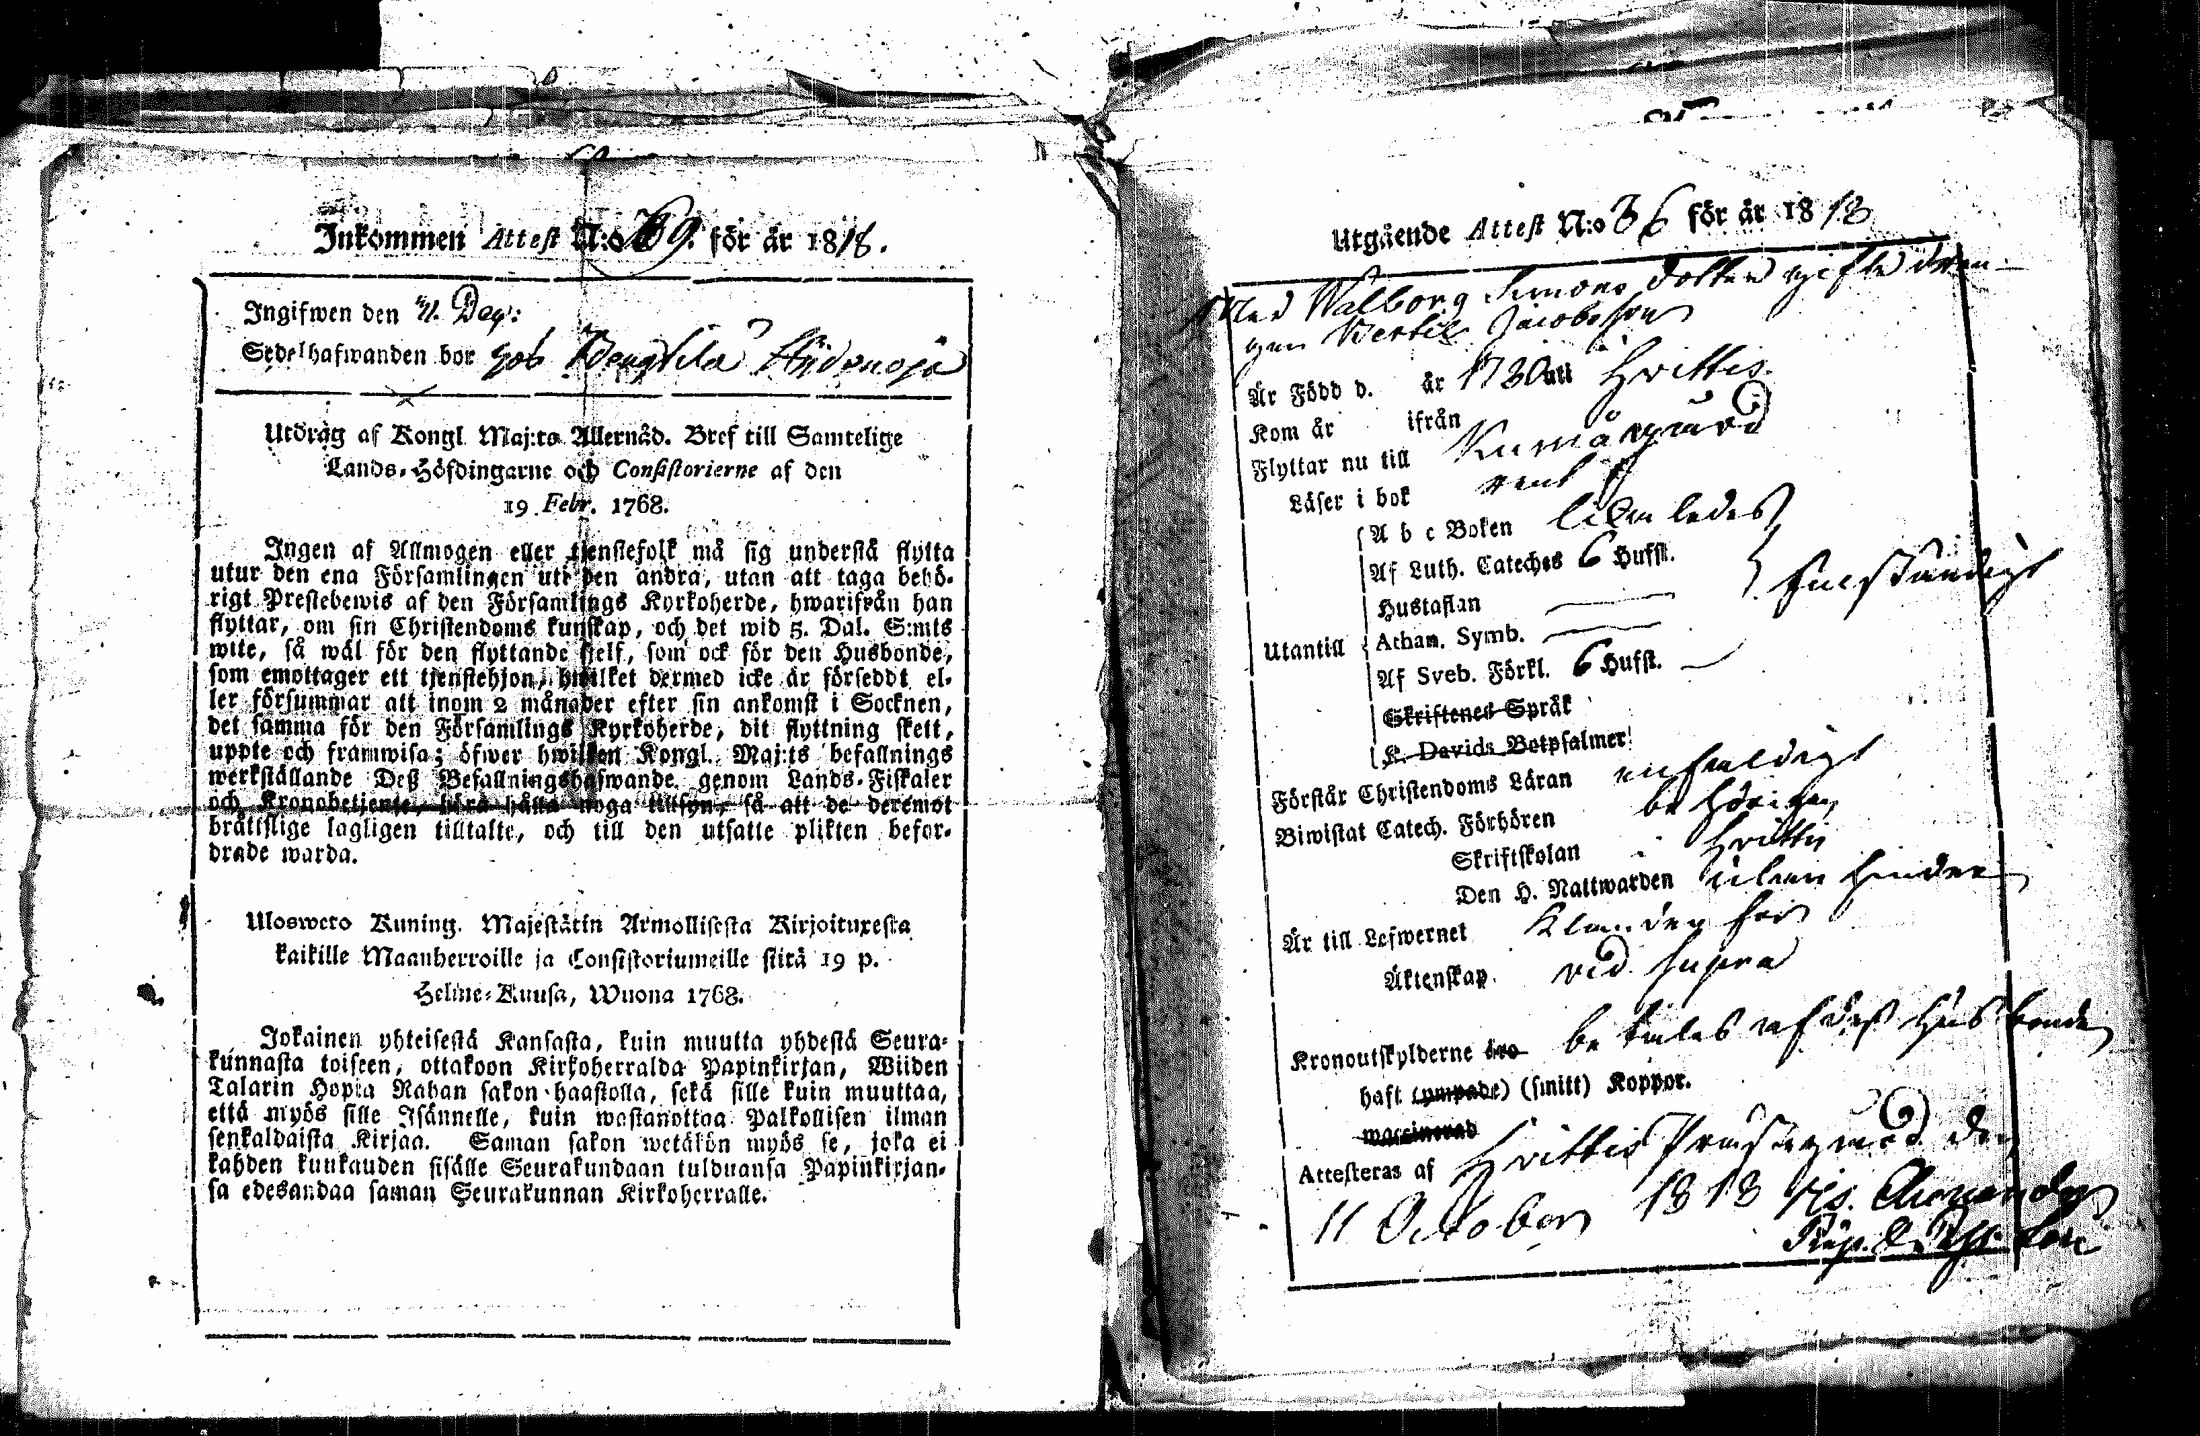 Inkommen Attest N:o 69. för år 1818.
Ingifwen den 11. Dec:
Sedelhafwanden bor hos
Utdrag af Kongl. Maj:ts Allernåd. Bref till Samtelige
Lands-Höfdingarne och Consistorierne af den
19 Febr. 1768.
Ingen af Allmogen eller tjenstefolk må sig understå flytta
utur den ena Församlingen uti den andra, utan att taga behö-
rigt Prestebewis af den Församlings Kyrkoherde, hwarifrån han
flyttar, om sin Christendoms kunskap, och det wid 5. Dal. S:mts
wite, så wäl för den flyttande sjelf, som ock för den Husbonde,
som emottager ett tjenstehjon, hwilket dermed icke är försedt el-
ler försummar att inom 2 månader efter sin ankomst i Socknen,
det samma för den Församlings Kyrkoherde, dit flyttning skett,
uppte och framwisa; öfwer hwilken Kongl. Maj:ts befallnings
werkställande Deß Befallningshafwande genom Lands-Fiskaler
och Kronobetjente, böra hålla noga tillsyn, så att de deremot
brättslige lagligen tilltalte, och till den utsatte plikten befor-
drade warda.
Ulosweto Kuning. Majestätin Armollisesta Kirjoituxesta
kaikille Maanherroille ja Consistoriumeille siitä 19 p.
Helme-Kuusa, Wuona 1768.
Jokainen yhteisestä Kansasta, kuin muutta yhdestä Seura-
kunnasta toiseen, ottakoon Kirkoherralda Papinkirjan, Wiiden
Talarin Hopia Rahan sakon haastolla, sekä sille kuin muuttaa,
että myös sille Isännelle, kuin wastanottaa Palkollisen ilman
senkaldaista Kirjaa. Saman sakon wetäkön myös se, joka ei
kahden kuukauden sisälle Seurakundaan tulduansa Papinkirjan-
sa edesandaa saman Seurakunnan Kirkoherralle.
Utgående Attest N:o 36 för år 1818
Walborg Simons dotter gifte dren-
gen Bertil Jacobsson
Är Född d. år 1780 uti Hvittis.
Kom år ifrån
Flyttar nu till Kumågård
Läser i bok rent
A b c Boken likaledes
Af Luth. Cateches 6 Hufst.
Hustaflan
Utantill Athan. Symb.
Af Sveb. Förkl. 6 Hufst.
Skriftenes Språk
K. Davids Botpsalmer
Förstår Christendoms Läran enfaldigt
Biwistat Catech. Förhören behörigen
Skriftskolan i Hvittis
Den H. Nattwarden utan hinder
Är till Lefwernet klander fri
Äktenskap vid. supra
Kronoutskylderne äro betalas af dess Husbonde
haft (ympade) (smitt) Koppor.
waccinerad
Attesteras af Hvittis Prustegård den
11 October 1818